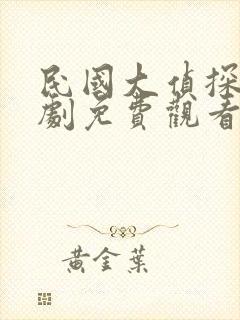 民國大偵探
劇免費觀看
黃金葉